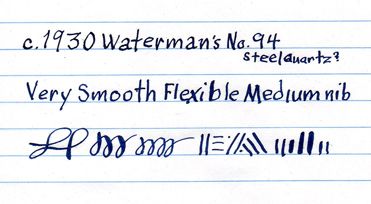 c. 1930 Waterman's No. 94
steelquartz?
Very Smooth Flexible Medium nib